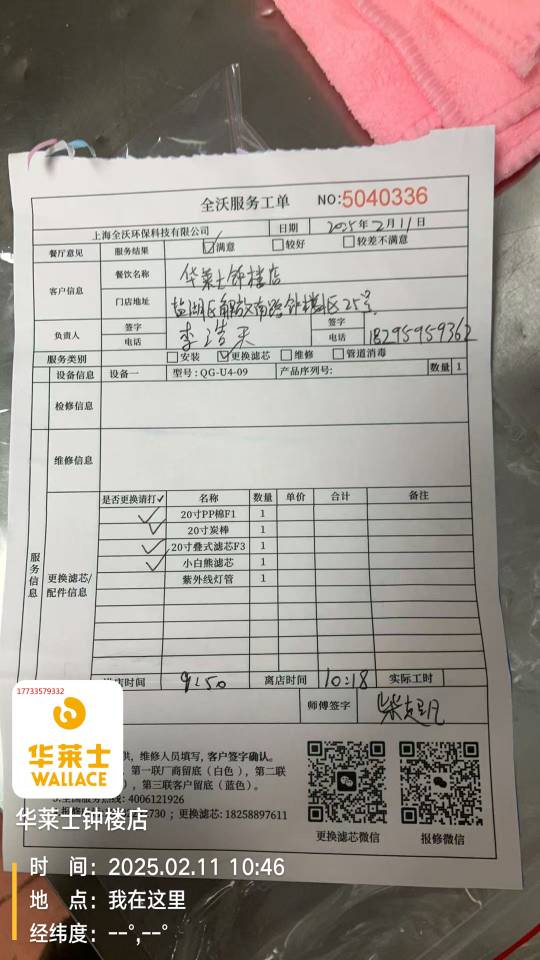 全沃服务工单 NO:5040336
上海全沃环保科技有限公司 日期 2025年2月11日
餐厅意见 服务结果 ☑满意 ☐较好 ☐较差不满意
客户信息 餐饮名称 华莱士钟楼店
门店地址 盐湖区解放南路钟楼社区25号
负责人 签字 李浩天 签字
电话 电话 18295959362
服务类别 ☐安装 ☑更换滤芯 ☐维修 ☐管道消毒
设备信息 设备一 型号:QG-U4-09 产品序列号: 数量 1
检修信息
维修信息
服务信息
更换滤芯/配件信息
是否更换请打✓ 名称 数量 单价 合计 备注
✓ 20寸PP棉F1 1
✓ 20寸炭棒 1
✓ 20寸叠式滤芯F3 1
✓ 小白熊滤芯 1
紫外线灯管 1
店时间 9:50 离店时间 10:18 实际工时
师傅签字 柴超凡
,维修人员填写,客户签字确认。
第一联厂商留底(白色),第二联
),第三联客户留底(蓝色)。
服务热线:4006121926
730;更换滤芯:18258897611
更换滤芯微信 报修微信
17733579332
华莱士
WALLACE
华莱士钟楼店
时 间:2025.02.11 10:46
地 点:我在这里
经纬度:--°,--°